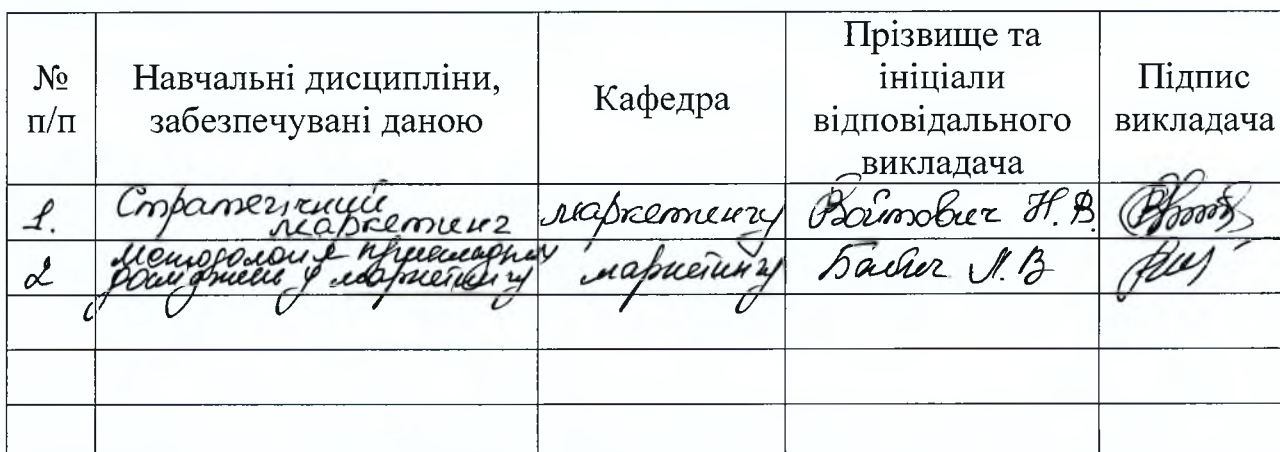 № п/п
Навчальні дисципліни, забезпечувані даною
Кафедра
Прізвище та ініціали відповідального викладача
Підпис викладача
1.
Стратегічний
маркетинг
маркетингу
Войтович Н. В.
2
Методологія прикладних
досліджень у маркетингу
маркетингу
Бабич Л. В